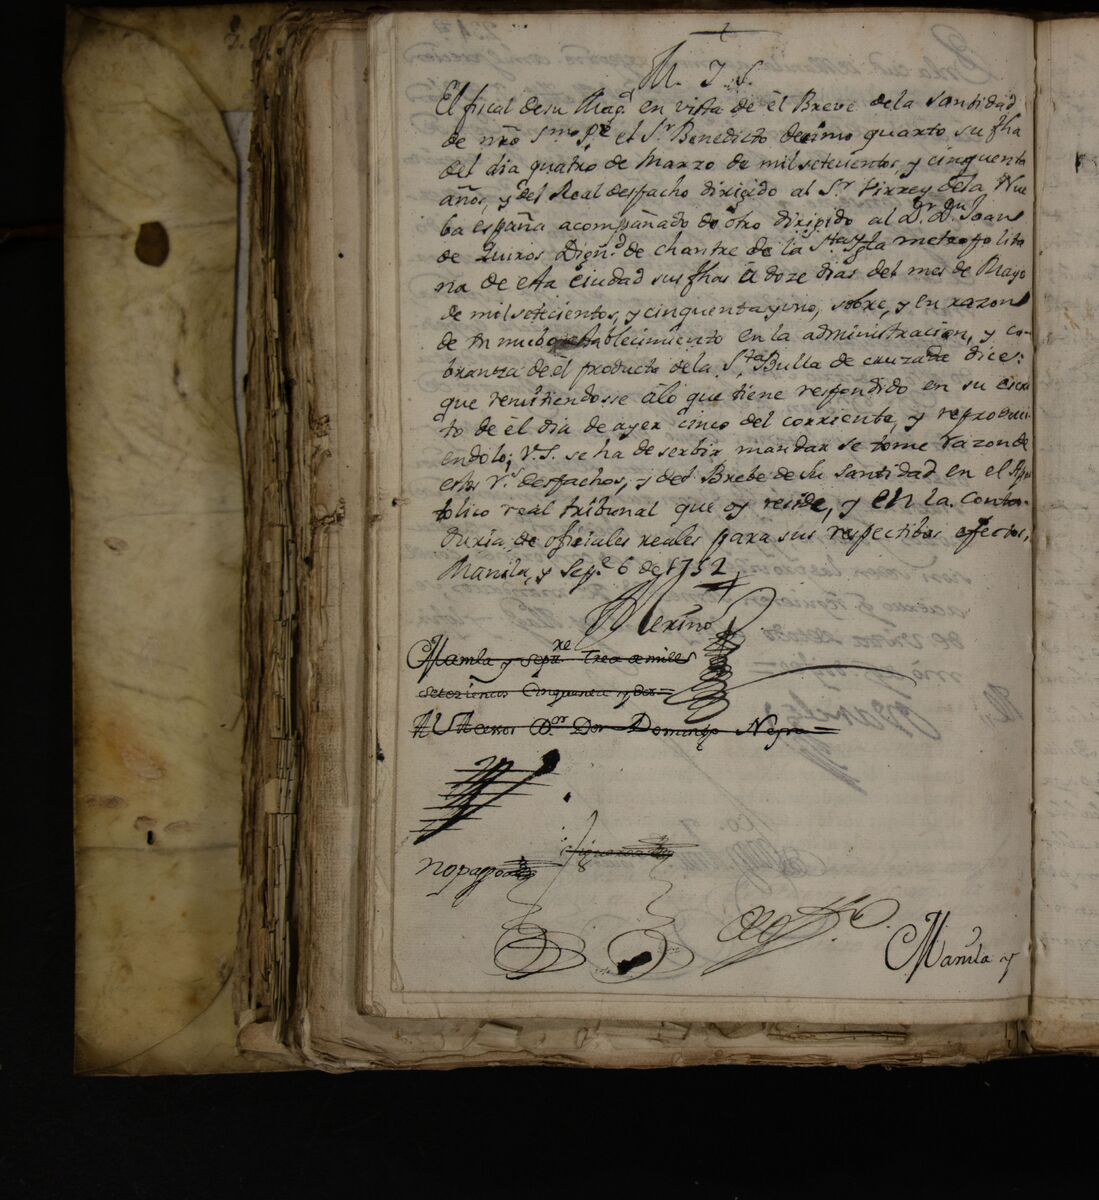 M. I. S.
El fiscal de su Mag.d en vista de el Breve de la Santidad
de nr̃o Smo. Pe. el Sr. Benedicto decimo quarto su fha
del dia quatro de Marzo de mil setecientos, y cinquenta
años, y del Real despacho dirigido al Sr. Virrey de la Nue
ba españa acompañado de otro dirigido al Dr. Dn. Joan
de Quiros Dign.d de chantre de la Sta. Ygla metropolita
na de esta ciudad sus fhas à doze dias del mes de Mayo
de mil setecientos, y cinquenta y uno, sobre, y en razon
de un nuebo establecimiento en la administracion, y co-
branza de el producto de la Sta. Bulla de cruzada dice:
que remitiendosse à lo que tiene respondido en su escri
to de el dia de ayer cinco del corriente, y reproduci-
endolo; V.S. se ha de serbir mandar se tome razon de
estos Rs. despachos, y del Brebe de su Santidad en el Apos
tolico real tribunal que oy reside, y en la Conta-
duria de oficiales reales para sus respectibos efectos,
Manila, y Sepe. 6 de 1752
Merino
Manila y Septtre Trece de mill
setezientos Cinquenta y dos=
Al Acesor Dor. Don Domingo Neyra=
Manila y